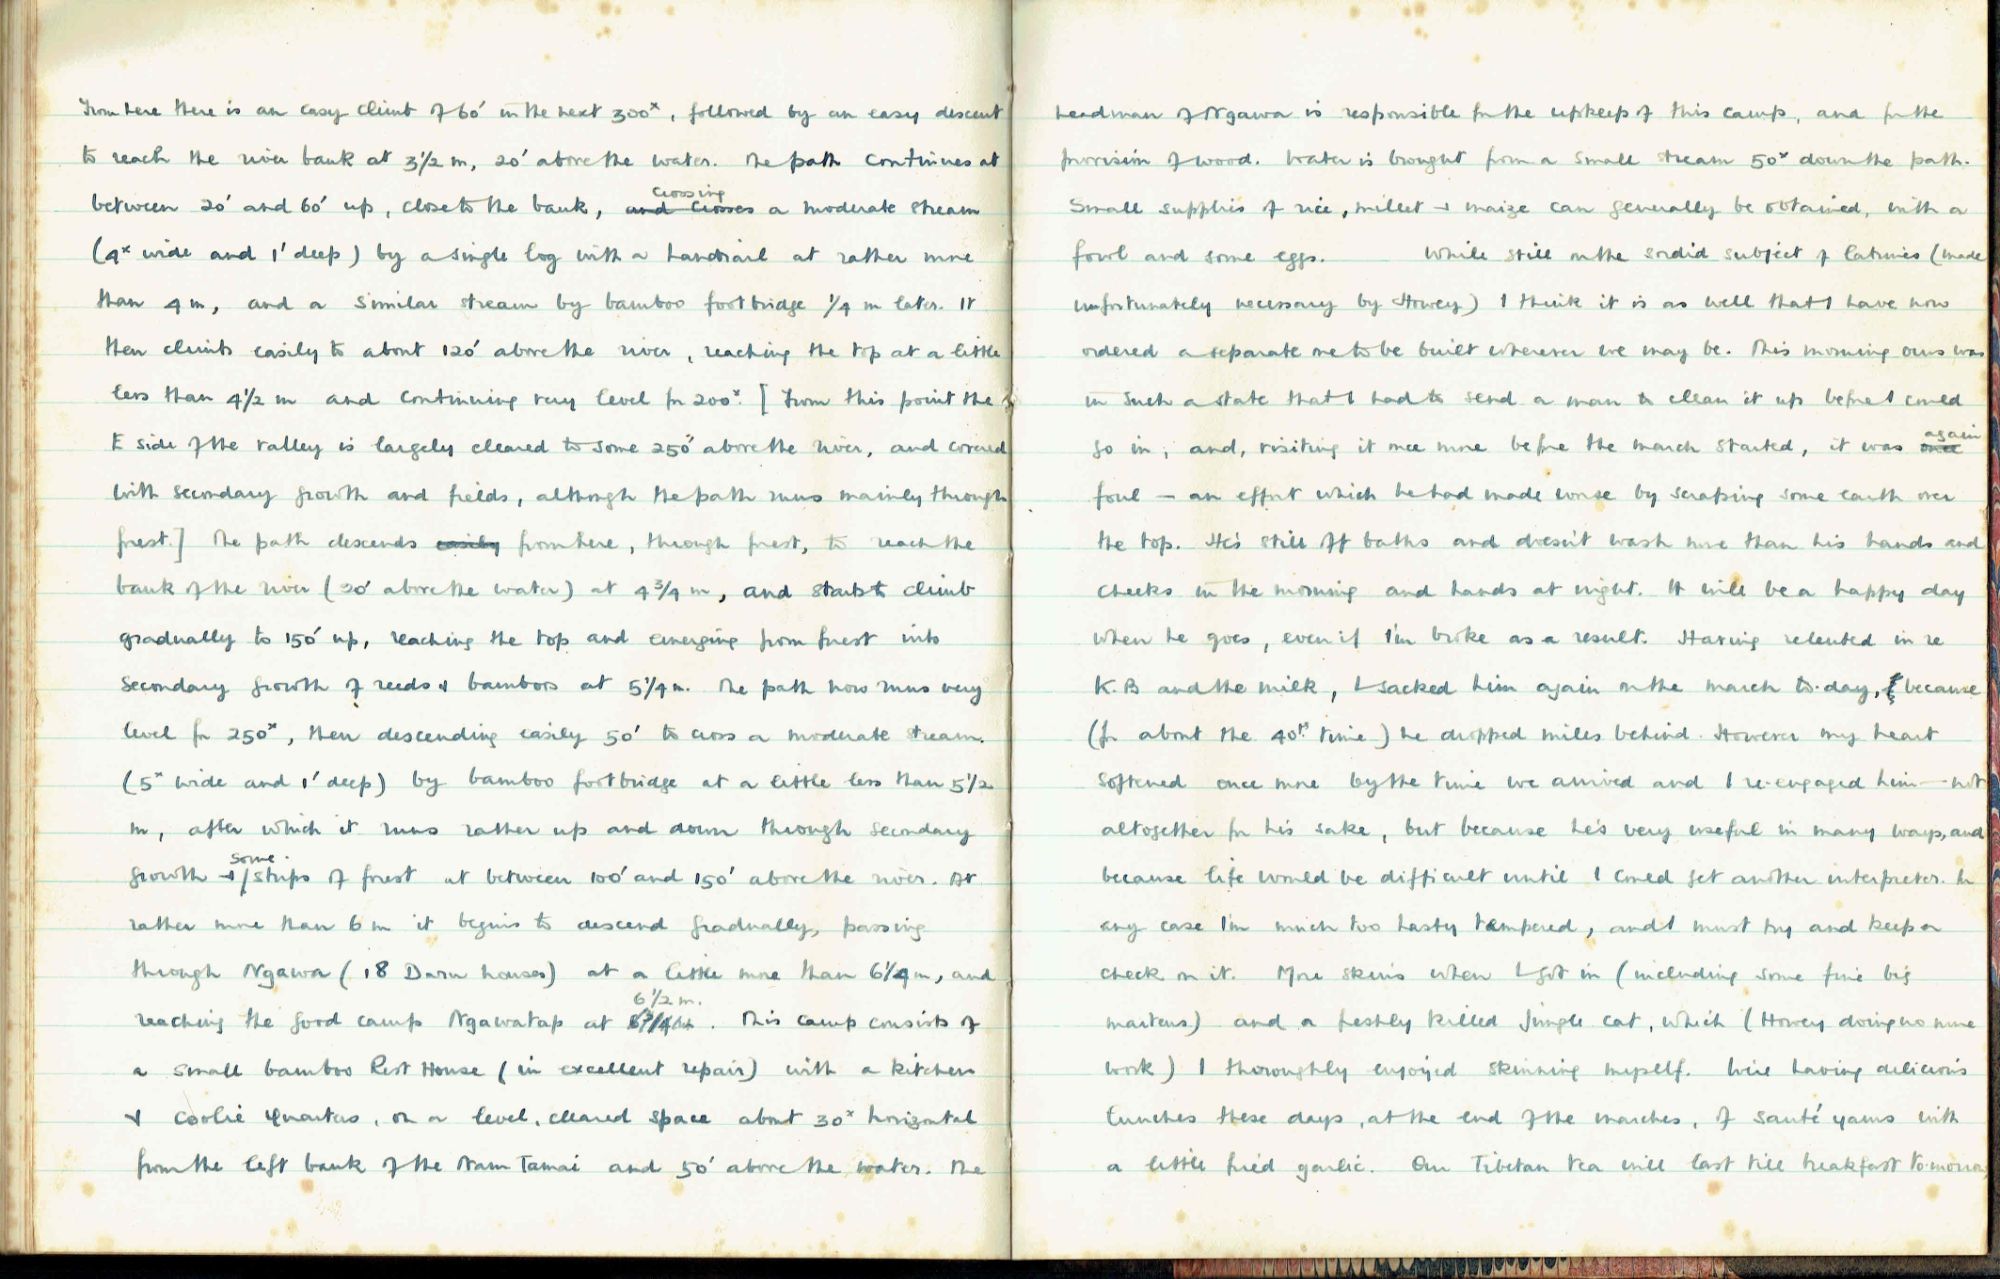 From here there is an easy climb of 60' in the next 300ˣ, followed by an easy descent
to reach the river bank at 3½ m, 20' above the water. The path continues at
between 20' and 60' up, close to the bank, and crosses crossing a moderate stream
(4ˣ wide and 1' deep) by a single log with a handrail at rather more
than 4 m, and a similar stream by bamboo footbridge ¼ m later. It
then climbs easily to about 120' above the river, reaching the top at a little
less than 4½ m and continuing very level for 200ˣ. [From this point the
E side of the valley is largely cleared to some 250' above the river, and covered
with secondary growth and fields, although the path runs mainly through
forest.] The path descends easily from here, through forest, to reach the
bank of the river (20' above the water) at 4¾ m, and starts to climb
gradually to 150' up, reaching the top and emerging from forest into
secondary growth of reeds & bamboos at 5¼ m. The path now runs very
level for 250ˣ, then descending easily 50' to cross a moderate stream
(5ˣ wide and 1' deep) by bamboo footbridge at a little less than 5½
m, after which it runs rather up and down through secondary
growth & some strips of forest at between 100' and 150' above the river. At
rather more than 6 m it begins to descend gradually, passing
through Ngawa (18 Daru houses) at a little more than 6¼ m, and
reaching the good camp Ngawatap at 6½ m. This camp consists of
a small bamboo Rest House (in excellent repair) with a kitchen
& coolie quarters, on a level, cleared space about 30ˣ horizontal
from the left bank of the Nam Tamai and 50' above the water. The
headman of Ngawa is responsible for the upkeep of this camp, and for the
provision of wood. Water is brought from a small stream 50ˣ down the path.
Small supplies of rice, millet & maize can generally be obtained, with a
fowl and some eggs. While still on the sordid subject of latrines (made
unfortunately necessary by Howey) I think it is as well that I have now
ordered a separate one to be built wherever we may be. This morning ours was
in such a state that I had to send a man to clean it up before I could
go in; and, visiting it once more before the march started, it was once again
foul — an effort which he had made worse by scraping some earth over
the top. He's still off baths and doesn't wash more than his hands and
cheeks in the morning and hands at night. It will be a happy day
when he goes, even if I'm broke as a result. Having relented in re
K.B and the milk, I sacked him again on the march to-day, because
(for about the 40th time) he dropped miles behind. However my heart
softened once more by the time we arrived and I re-engaged him — not
altogether for his sake, but because he's very useful in many ways, and
because life would be difficult until I could get another interpreter. In
any case I'm much too hasty tempered, and I must try and keep a
check on it. More skins when I got in (including some fine big
martens) and a freshly killed jungle cat, which (Howey doing no more
work) I thoroughly enjoyed skinning myself. We're having delicious
lunches these days, at the end of the marches, of sauté yams with
a little fried garlic. Our Tibetan tea will last till breakfast to-morrow,